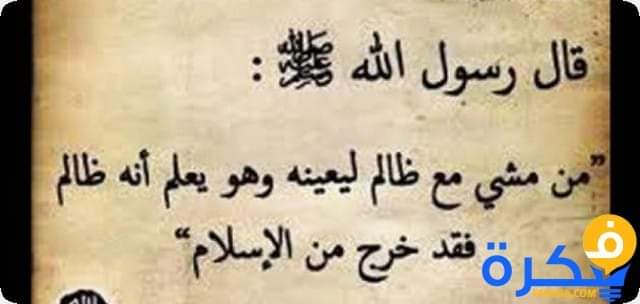 قال رسول الله ﷺ :
”من مشي مع ظالم ليعينه وهو يعلم أنه ظالم
فقد خرج من الإسلام“
فكرة